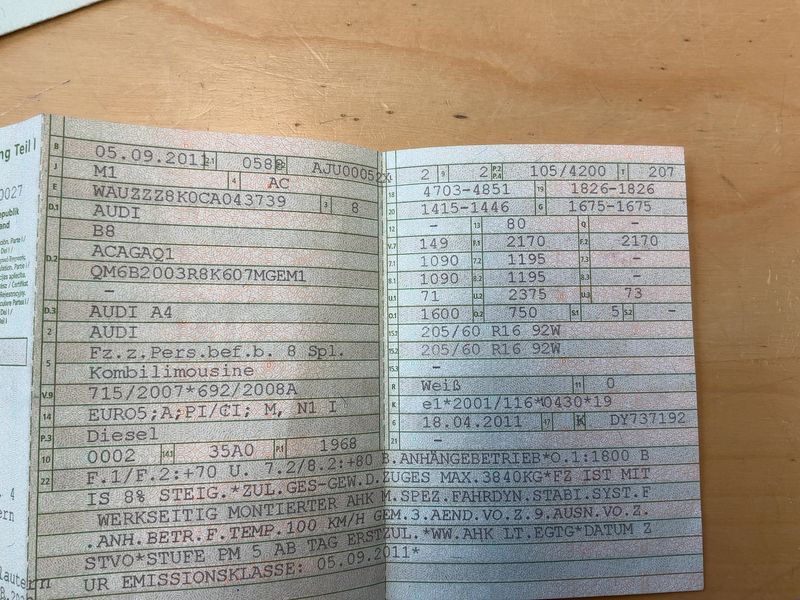 ng Teil I
0027
B 05.09.2011 2.1 0588 2.2 AJU00052
J M1 4 AC
E WAUZZZ8K0CA043739 3 8
D.1 AUDI
B8
D.2 ACAGAQ1
QM6B2003R8K607MGEM1
–
D.3 AUDI A4
2 AUDI
5 Fz.z.Pers.bef.b. 8 Spl.
Kombilimousine
V.9 715/2007*692/2008A
14 EURO5;A;PI/CI; M, N1 I
P.3 Diesel
10 0002 14.1 35A0 P.1 1968
2 9 2 P.2 P.4 105/4200 T 207
18 4703-4851 19 1826-1826
20 1415-1446 G 1675-1675
12 – 13 80 Q –
V.7 149 F.1 2170 F.2 2170
7.1 1090 7.2 1195 7.3 –
8.1 1090 8.2 1195 8.3 –
U.1 71 U.2 2375 U.3 73
O.1 1600 O.2 750 S.1 5 S.2 –
15.1 205/60 R16 92W
15.2 205/60 R16 92W
15.3 –
R Weiß 11 0
K e1*2001/116*0430*19
6 18.04.2011 17 K DY737192
21 –
22 F.1/F.2:+70 U. 7.2/8.2:+80 B.ANHÄNGEBETRIEB*O.1:1800 B
IS 8% STEIG.*ZUL.GES-GEW.D.ZUGES MAX.3840KG*FZ IST MIT
WERKSEITIG MONTIERTER AHK M.SPEZ.FAHRDYN.STABI.SYST.F
.ANH.BETR.F.TEMP.100 KM/H GEM.3.AEND.VO.Z.9.AUSN.VO.Z.
STVO*STUFE PM 5 AB TAG ERSTZUL.*WW.AHK LT.EGTG*DATUM Z
UR EMISSIONSKLASSE: 05.09.2011*